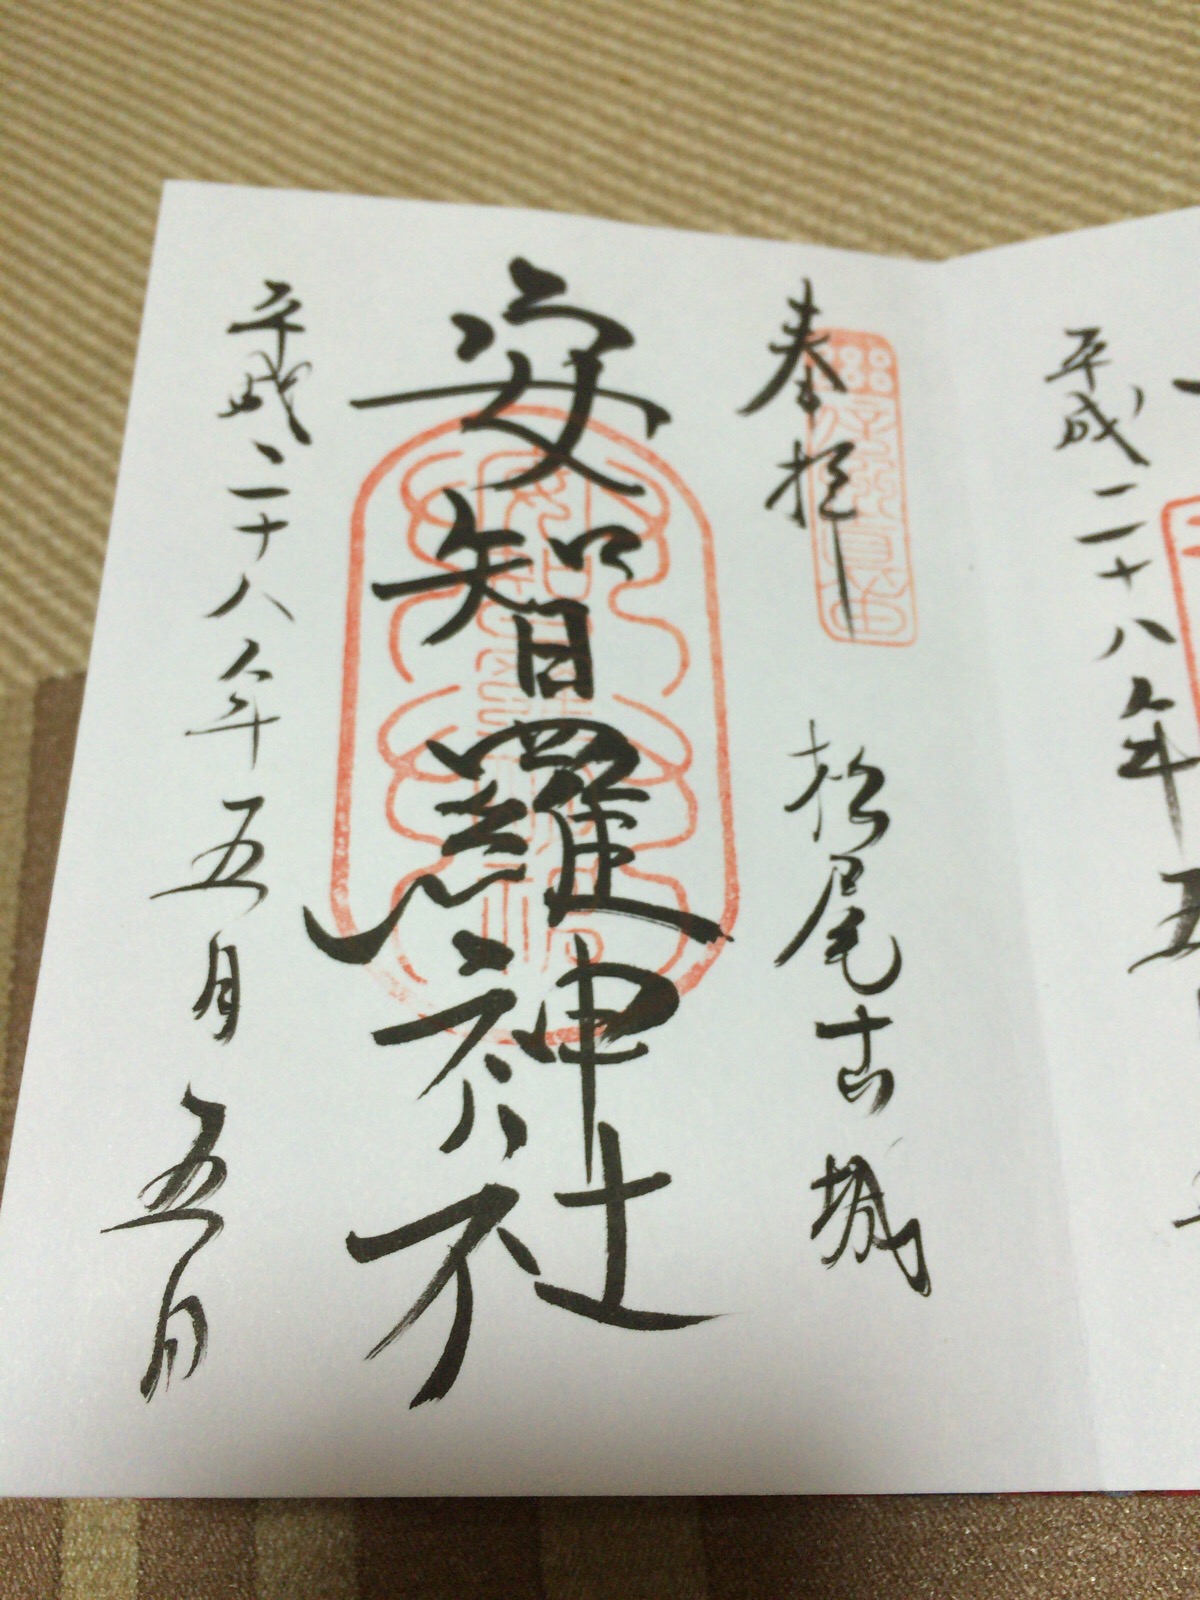 平成二十八年五
奉拝　松尾古城
安智羅神社
平成二十八年五月五日